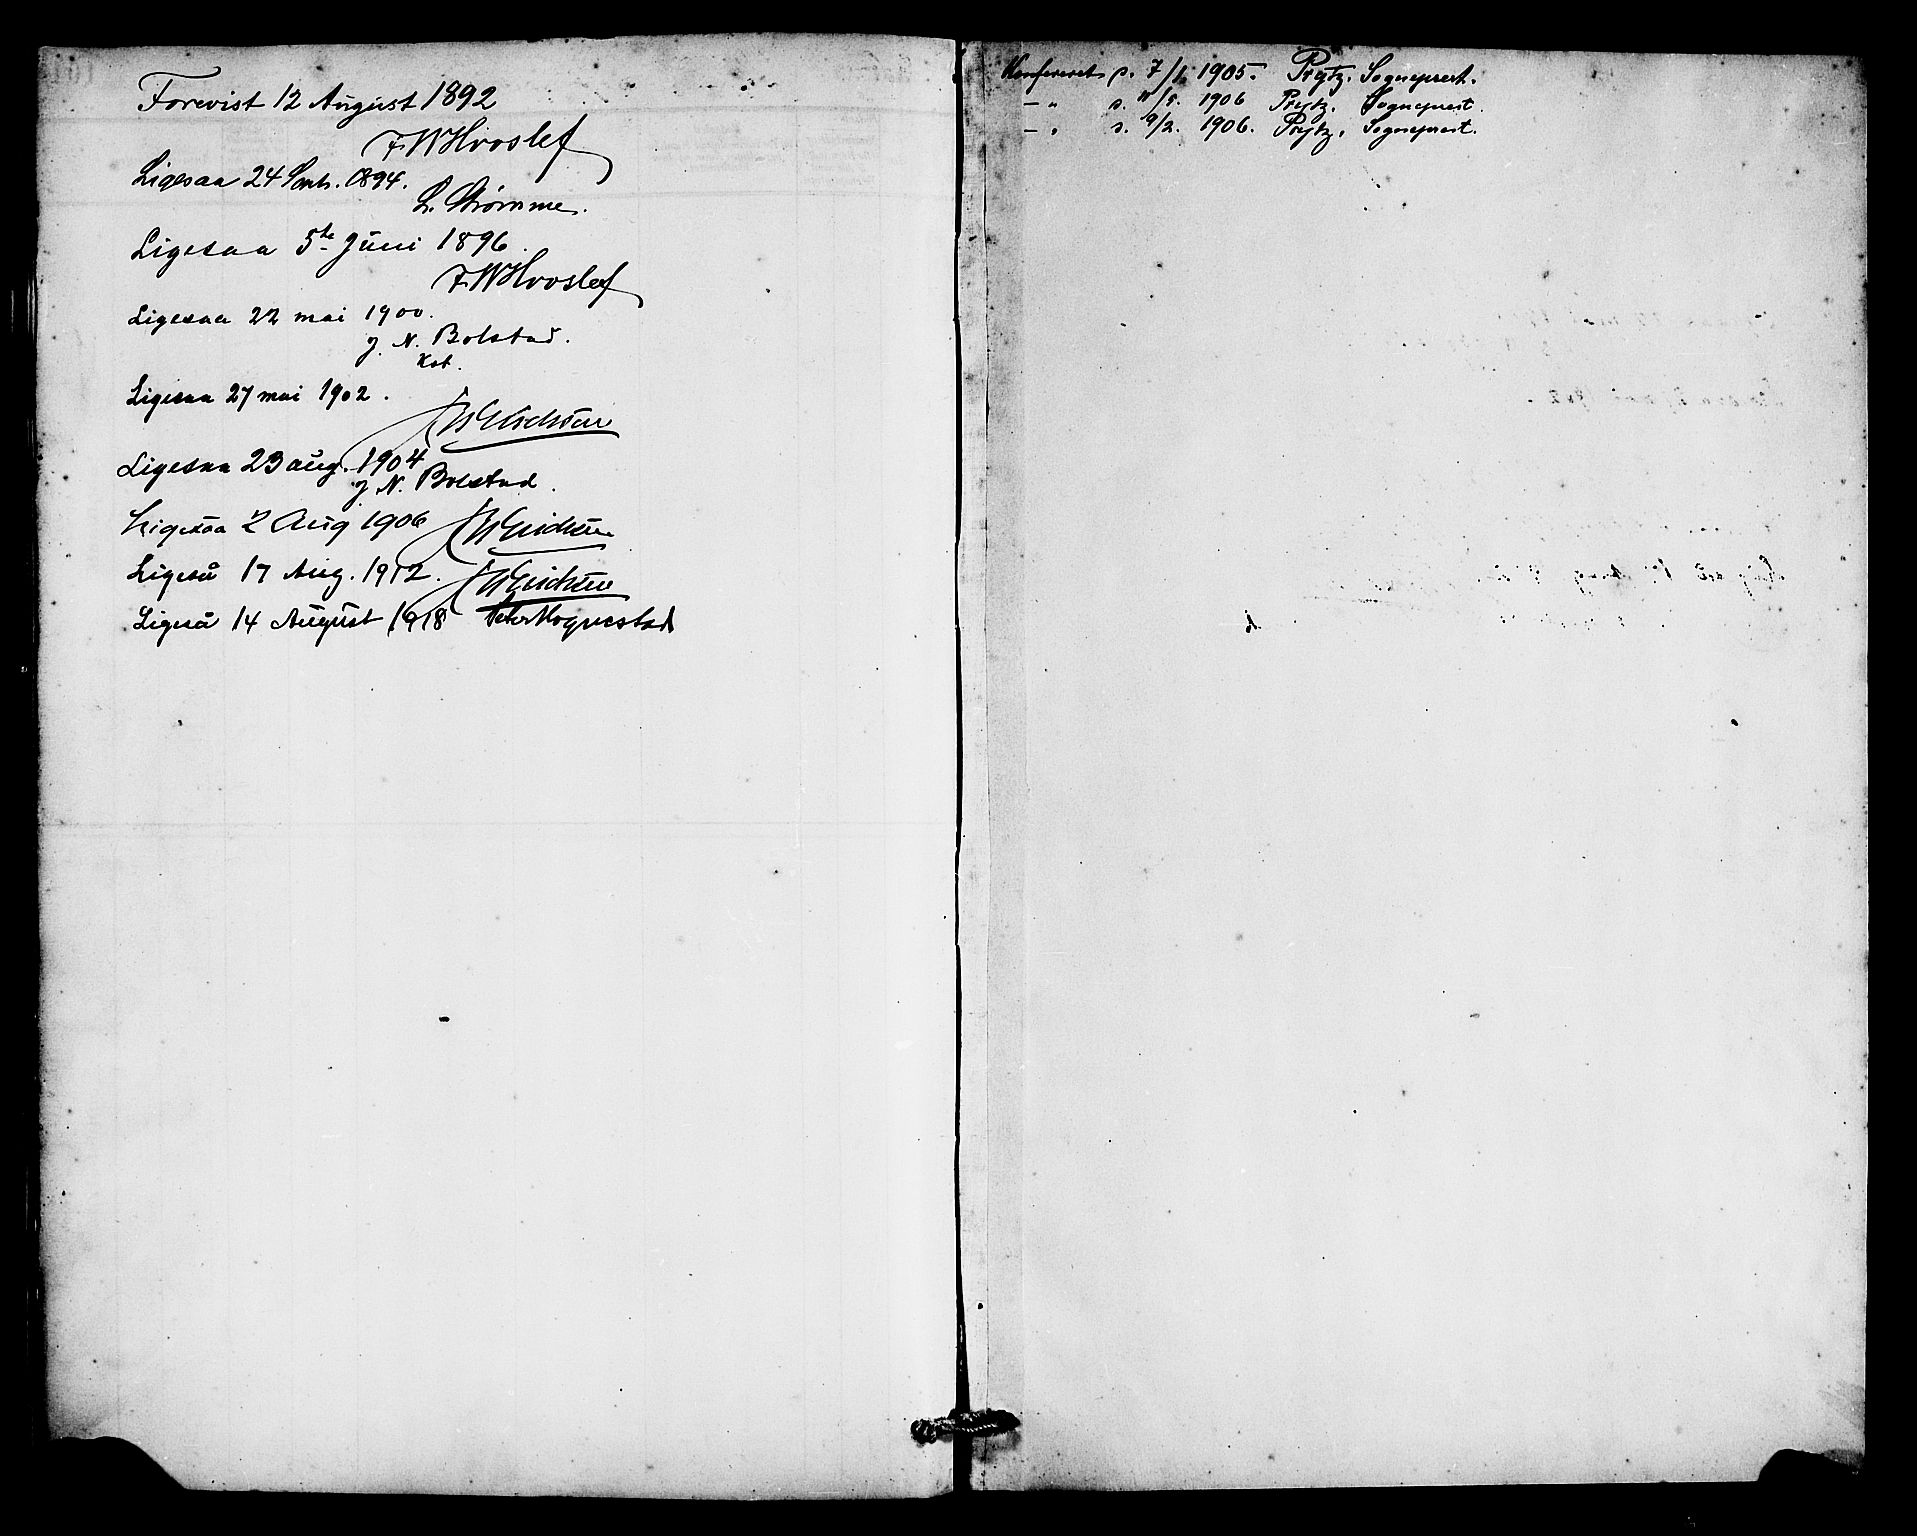 Forevist 12 August 1892
F. W Hvoslef
Ligesaa 24 Sept. 1894.
L. Strömme.
Ligesaa 5te Juni 1896.
F. W Hvoslef
Ligesaa 22 mai 1900.
J. N. Bolstad.
Kst.
Ligesaa 27 mai 1902.
Ligesaa 23 aug. 1904
J. N. Bolstad.
Ligesaa 2 Aug 1906
Ligeså 17 Aug. 1912.
Ligeså 14 August 1918 Peter Hognestad
Konfereret p. 7/1 1905. Prytz. Sogneprest.
— " s. 1906 Prytz. Sogneprest.
— " s. 9/2. 1906. Prytz. Sogneprest.